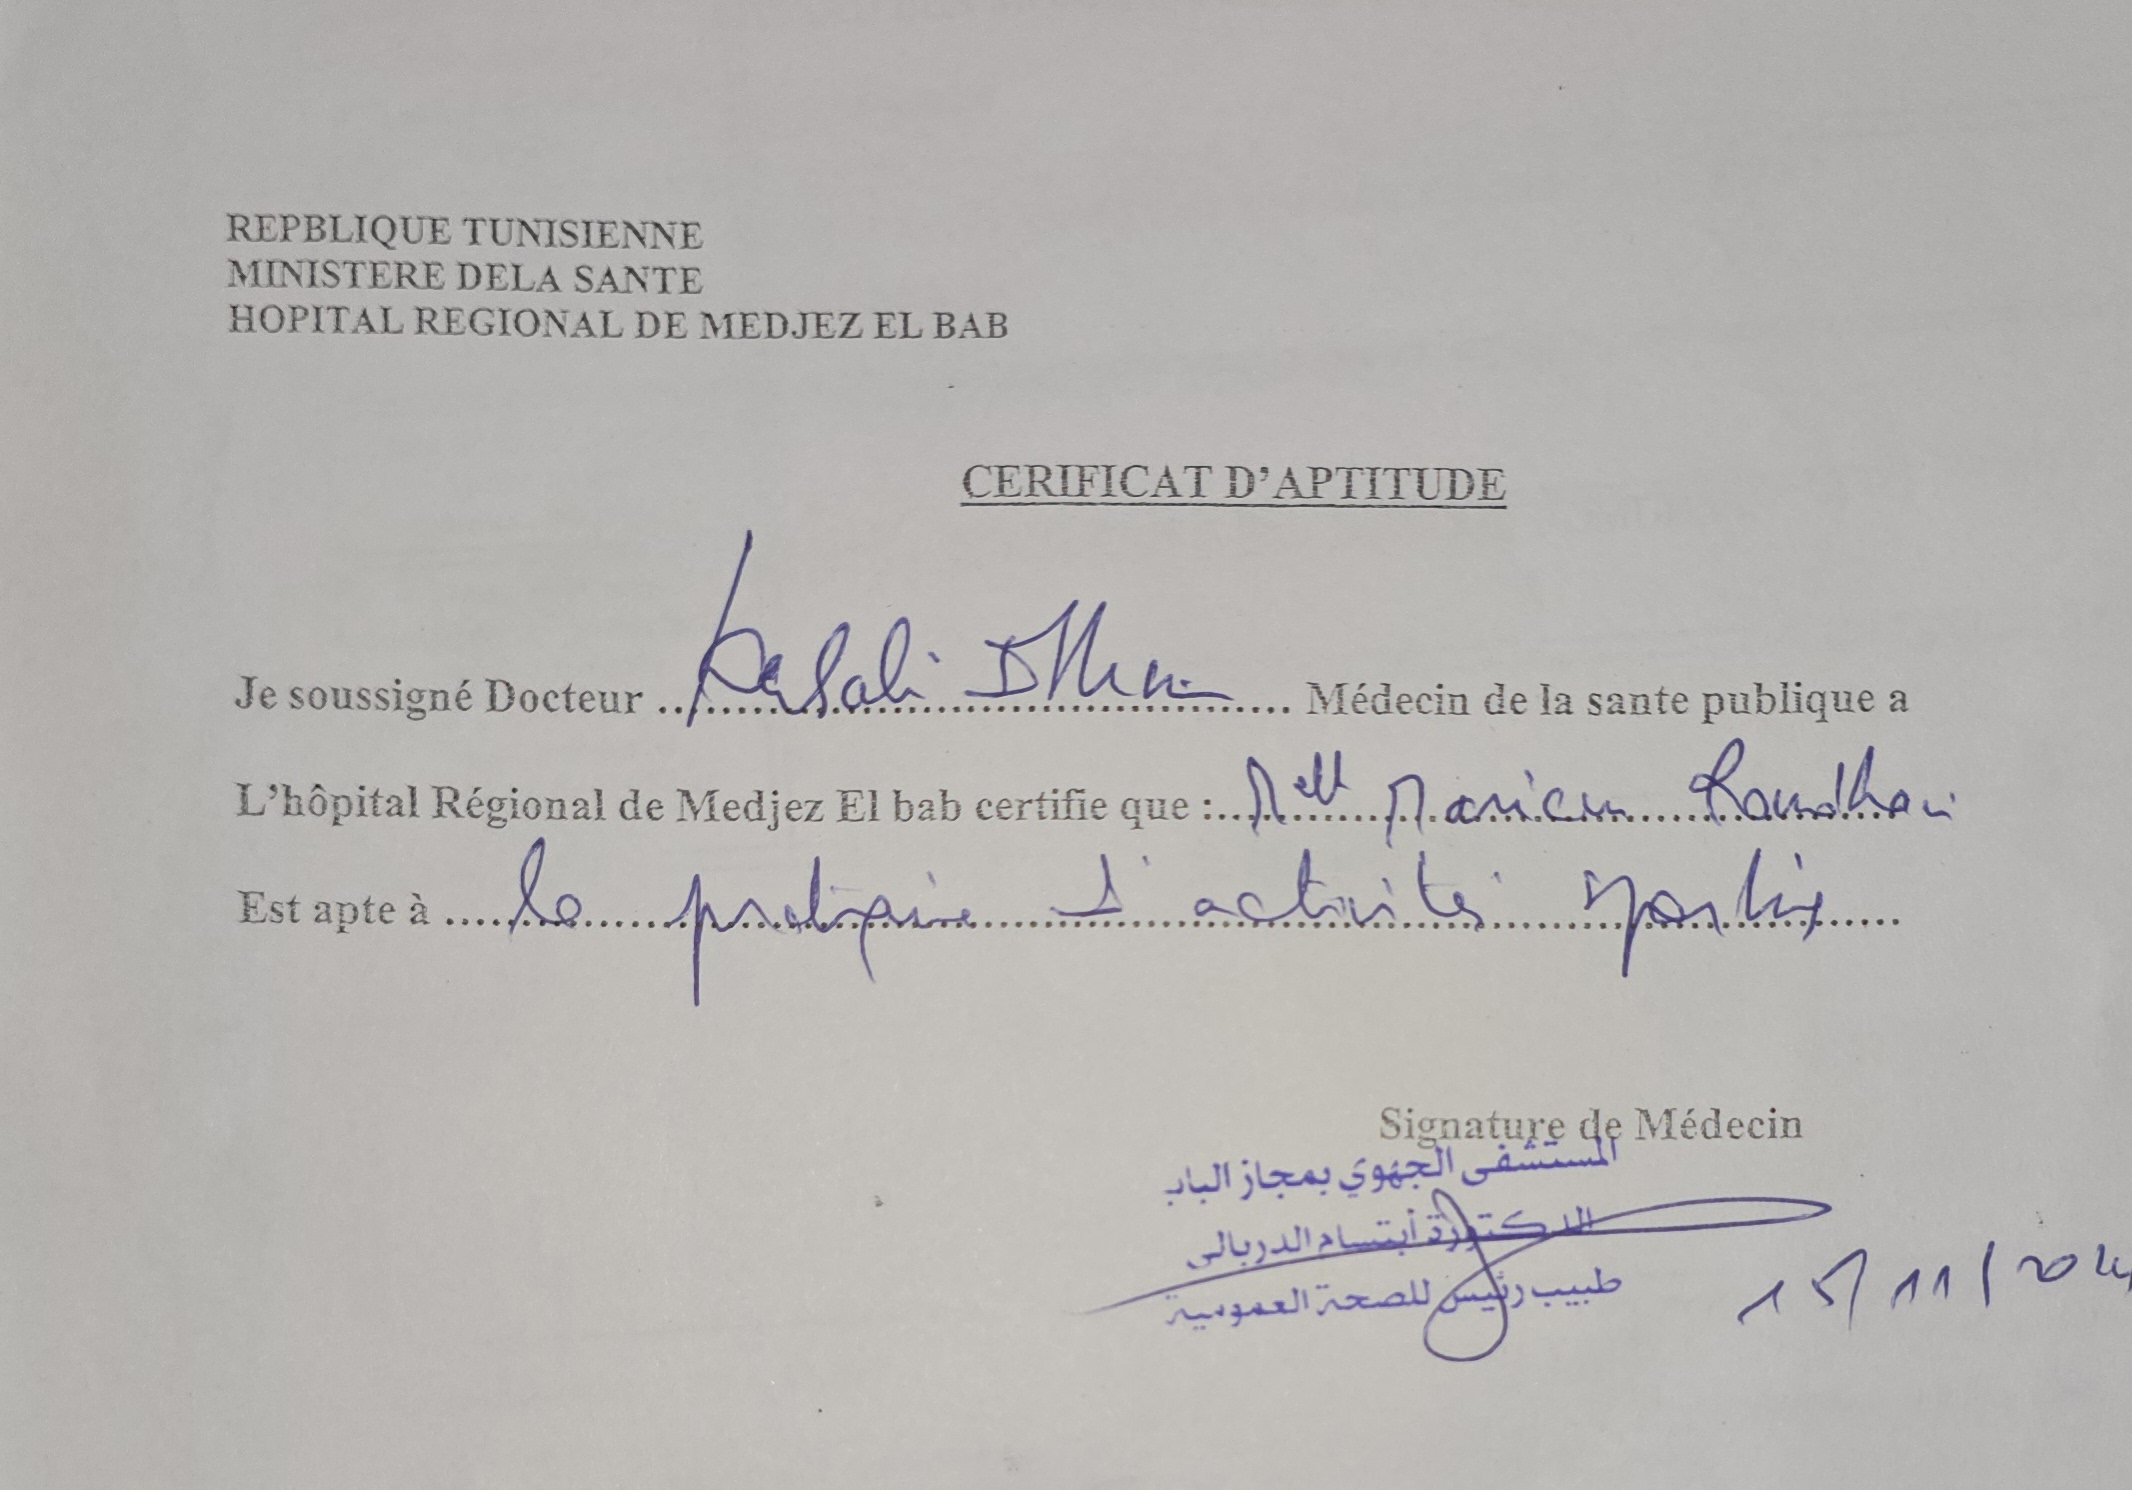 REPBLIQUE TUNISIENNE
MINISTERE DELA SANTE
HOPITAL REGIONAL DE MEDJEZ EL BAB
CERIFICAT D'APTITUDE
Je soussigné Docteur .......... Médecin de la sante publique a
L'hôpital Régional de Medjez El bab certifie que : Melle Mariem Ramdhani
Est apte à la pratique d'activités
Signature de Médecin
المستشفى الجهوي بمجاز الباب
الدكتورة أبتسام الدربالي
طبيب رئيس للصحة العمومية
15/11/202